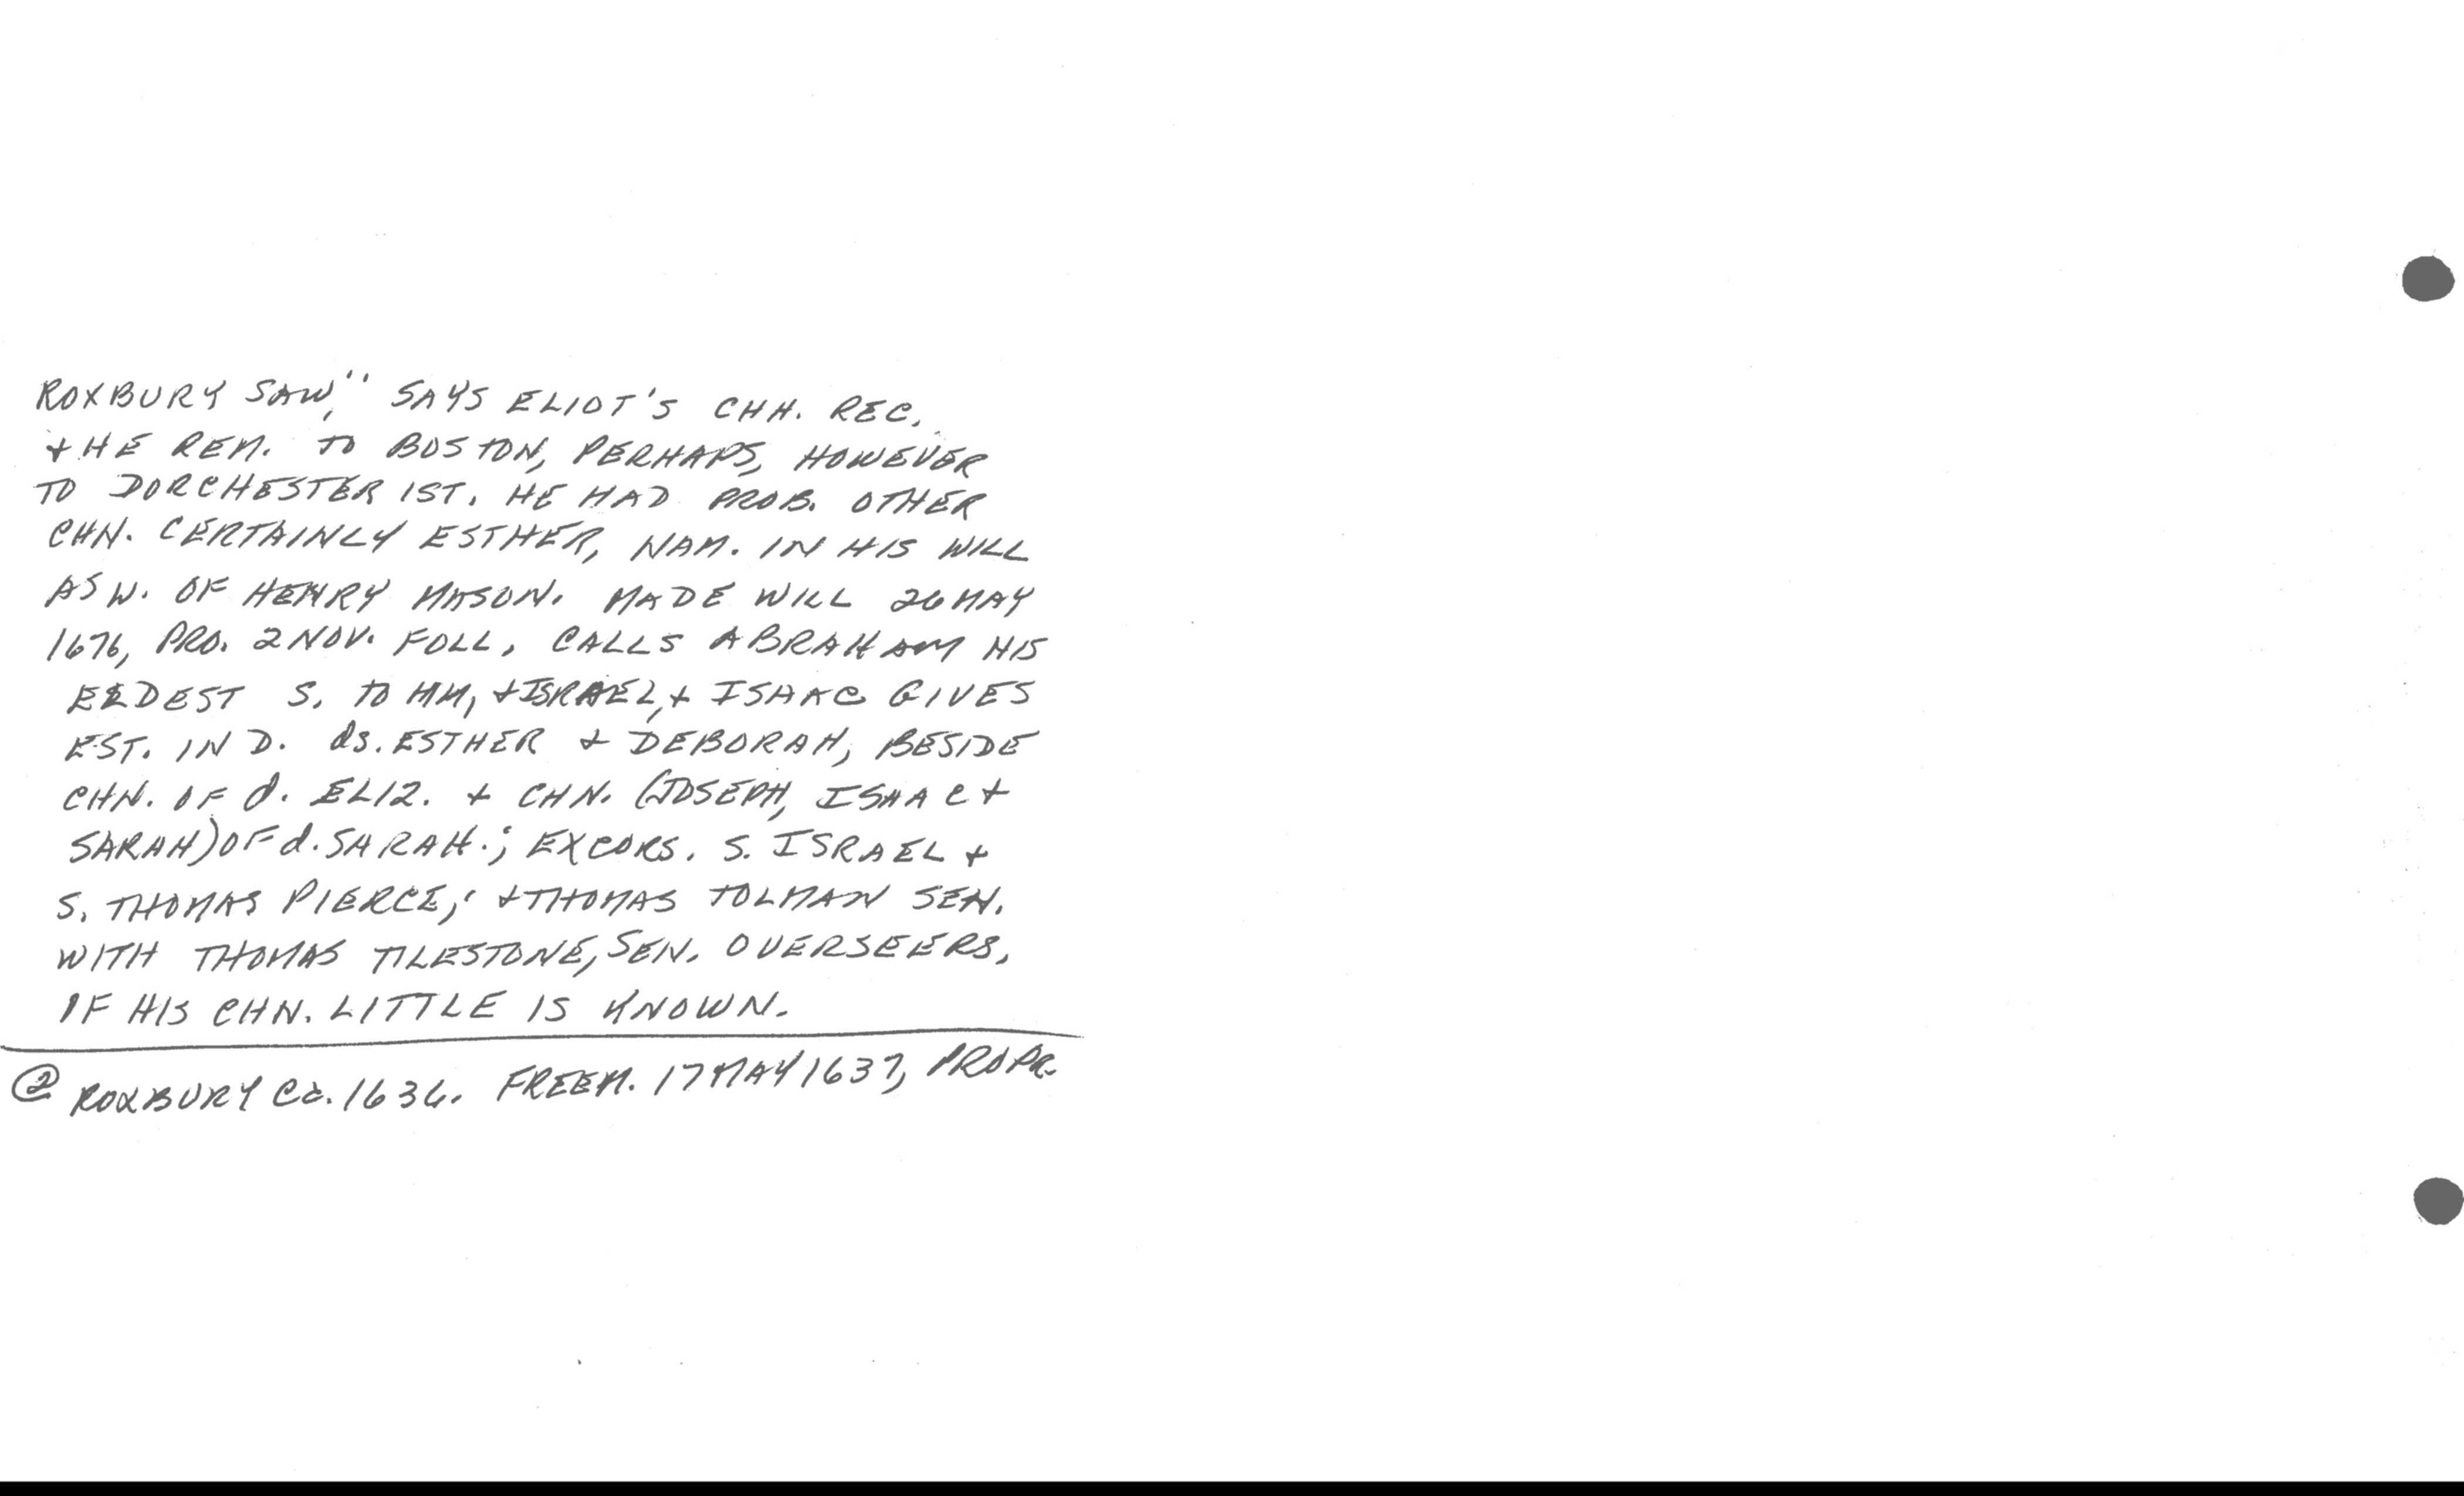 ROXBURY SAW," SAYS ELIOT'S CHH. REC.
+ HE REM. TO BOSTON, PERHAPS, HOWEVER
TO DORCHESTER 1ST. HE HAD PROB. OTHER
CHN. CERTAINLY ESTHER, NAM. IN HIS WILL
AS W. OF HENRY MASON. MADE WILL 26 MAY
1676, PRO. 2 NOV. FOLL. CALLS ABRAHAM HIS
ELDEST S. TO HM, + ISRAEL, + ISAAC GIVES
EST. IN D. ds. ESTHER + DEBORAH, BESIDE
CHN. OF d. ELIZ. + CHN. (JOSEPH, ISAAC +
SARAH) OF d. SARAH.; EXCORS. S. ISRAEL +
S. THOMAS PIERCE; + THOMAS TOLMAN SEN.
WITH THOMAS TILESTONE, SEN. OVERSEERS.
OF HIS CHN. LITTLE IS KNOWN.
② ROXBURY Ca. 1636. FREEM. 17 MAY 1637, PROPR.